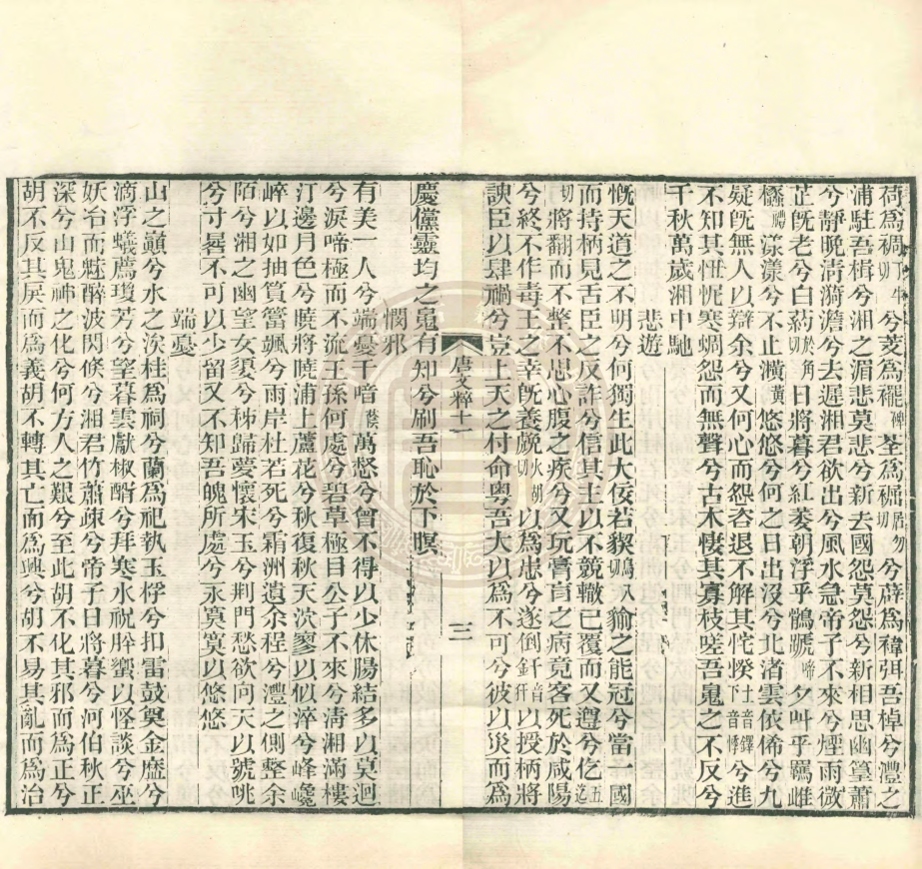 荷爲裯丁牛切兮菱爲䙓碑荃爲裾居勿切兮薜爲褘弭吾棹兮澧之
浦駐吾楫兮湘之湄悲莫悲兮新去國怨莫怨兮新相思幽篁蕭
兮靜晚淸漪澹兮去遲湘君欲出兮風水急帝子不來兮煙雨微
芷旣老兮白葯於角切日將暮兮紅萎朝浮乎鶻鷈啼夕叫乎羈雌
漾漾兮不止潢黃悠悠兮何之日出沒兮北渚雲依俙兮九
疑旣無人以辯余兮又何心而怨咨退不解其恅上音鐸下音悸兮進
不知其怩寒蜩怨而無聲兮古木悽其寡枝嗟吾鬼之不反兮
千秋萬歲湘中馳
悲遊
慨天道之不明兮何獨生此大佞若猰貐之能冠兮當一國
而持柄見舌臣之反詐兮信其主以不競轍已覆而又遵兮仡五迄
切將翻而不整不思心腹之疾兮又玩膏肓之病竟客死於咸陽
兮終不作毒王之幸旣養虤火胡切以爲患兮遂倒釬音仟以授柄將
諛臣以肆禍兮豈上天之付命粤吾大以爲不可兮彼以災而爲
慶儻靈均之鬼有知兮刷吾恥於下瞑
唐文粹十一
三
憫邪
有美一人兮端憂千喑萬愁兮曾不得以少休腸結多以莫迴
兮淚啼極而不流王孫何處兮碧草極目公子不來兮淸湘滿樓
汀邊月色兮曉將曉浦上蘆花兮秋復秋天泬寥以似淬兮峰巉
崪以如抽篔簹颯兮雨岸杜若死兮霜洲遺余程兮澧之側整余
陌兮湘之幽望女嬃兮秭歸憂懷宋玉兮荆門愁欲向天以號咷
兮寸晷不可以少留又不知吾魄所處兮永寞寞以悠悠
端憂
山之巔兮水之涘桂爲祠兮蘭爲祀執玉桴兮扣雷鼓奠金罍兮
滴浮蟻薦瓊芳兮望暮雲獻椒醑兮拜寒水祝肸蠁以怪談兮巫
妖冶而魅醉波閃倏兮湘君竹蕭疎兮帝子日將暮兮河伯秋正
深兮山鬼神之化兮何方人之艱兮至此胡不化其邪而爲正兮
胡不反其戾而爲義胡不轉其亡而爲興兮胡不易其亂而爲治